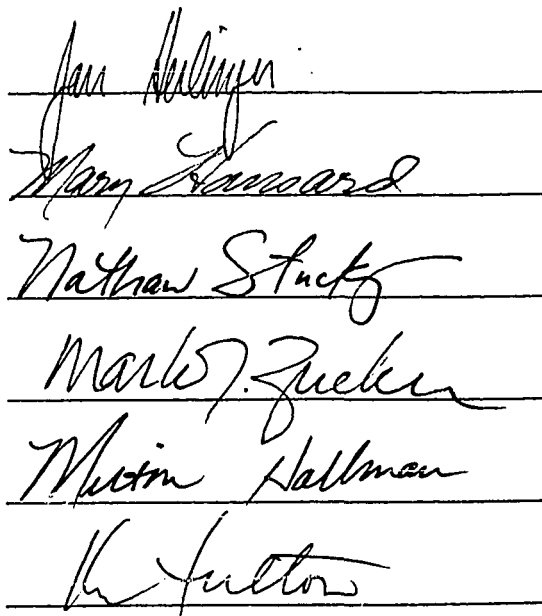 Jan Herlinger
Mary Hansard
Nathan Stucky
Mark J. Zucker
Hallman
Fulton